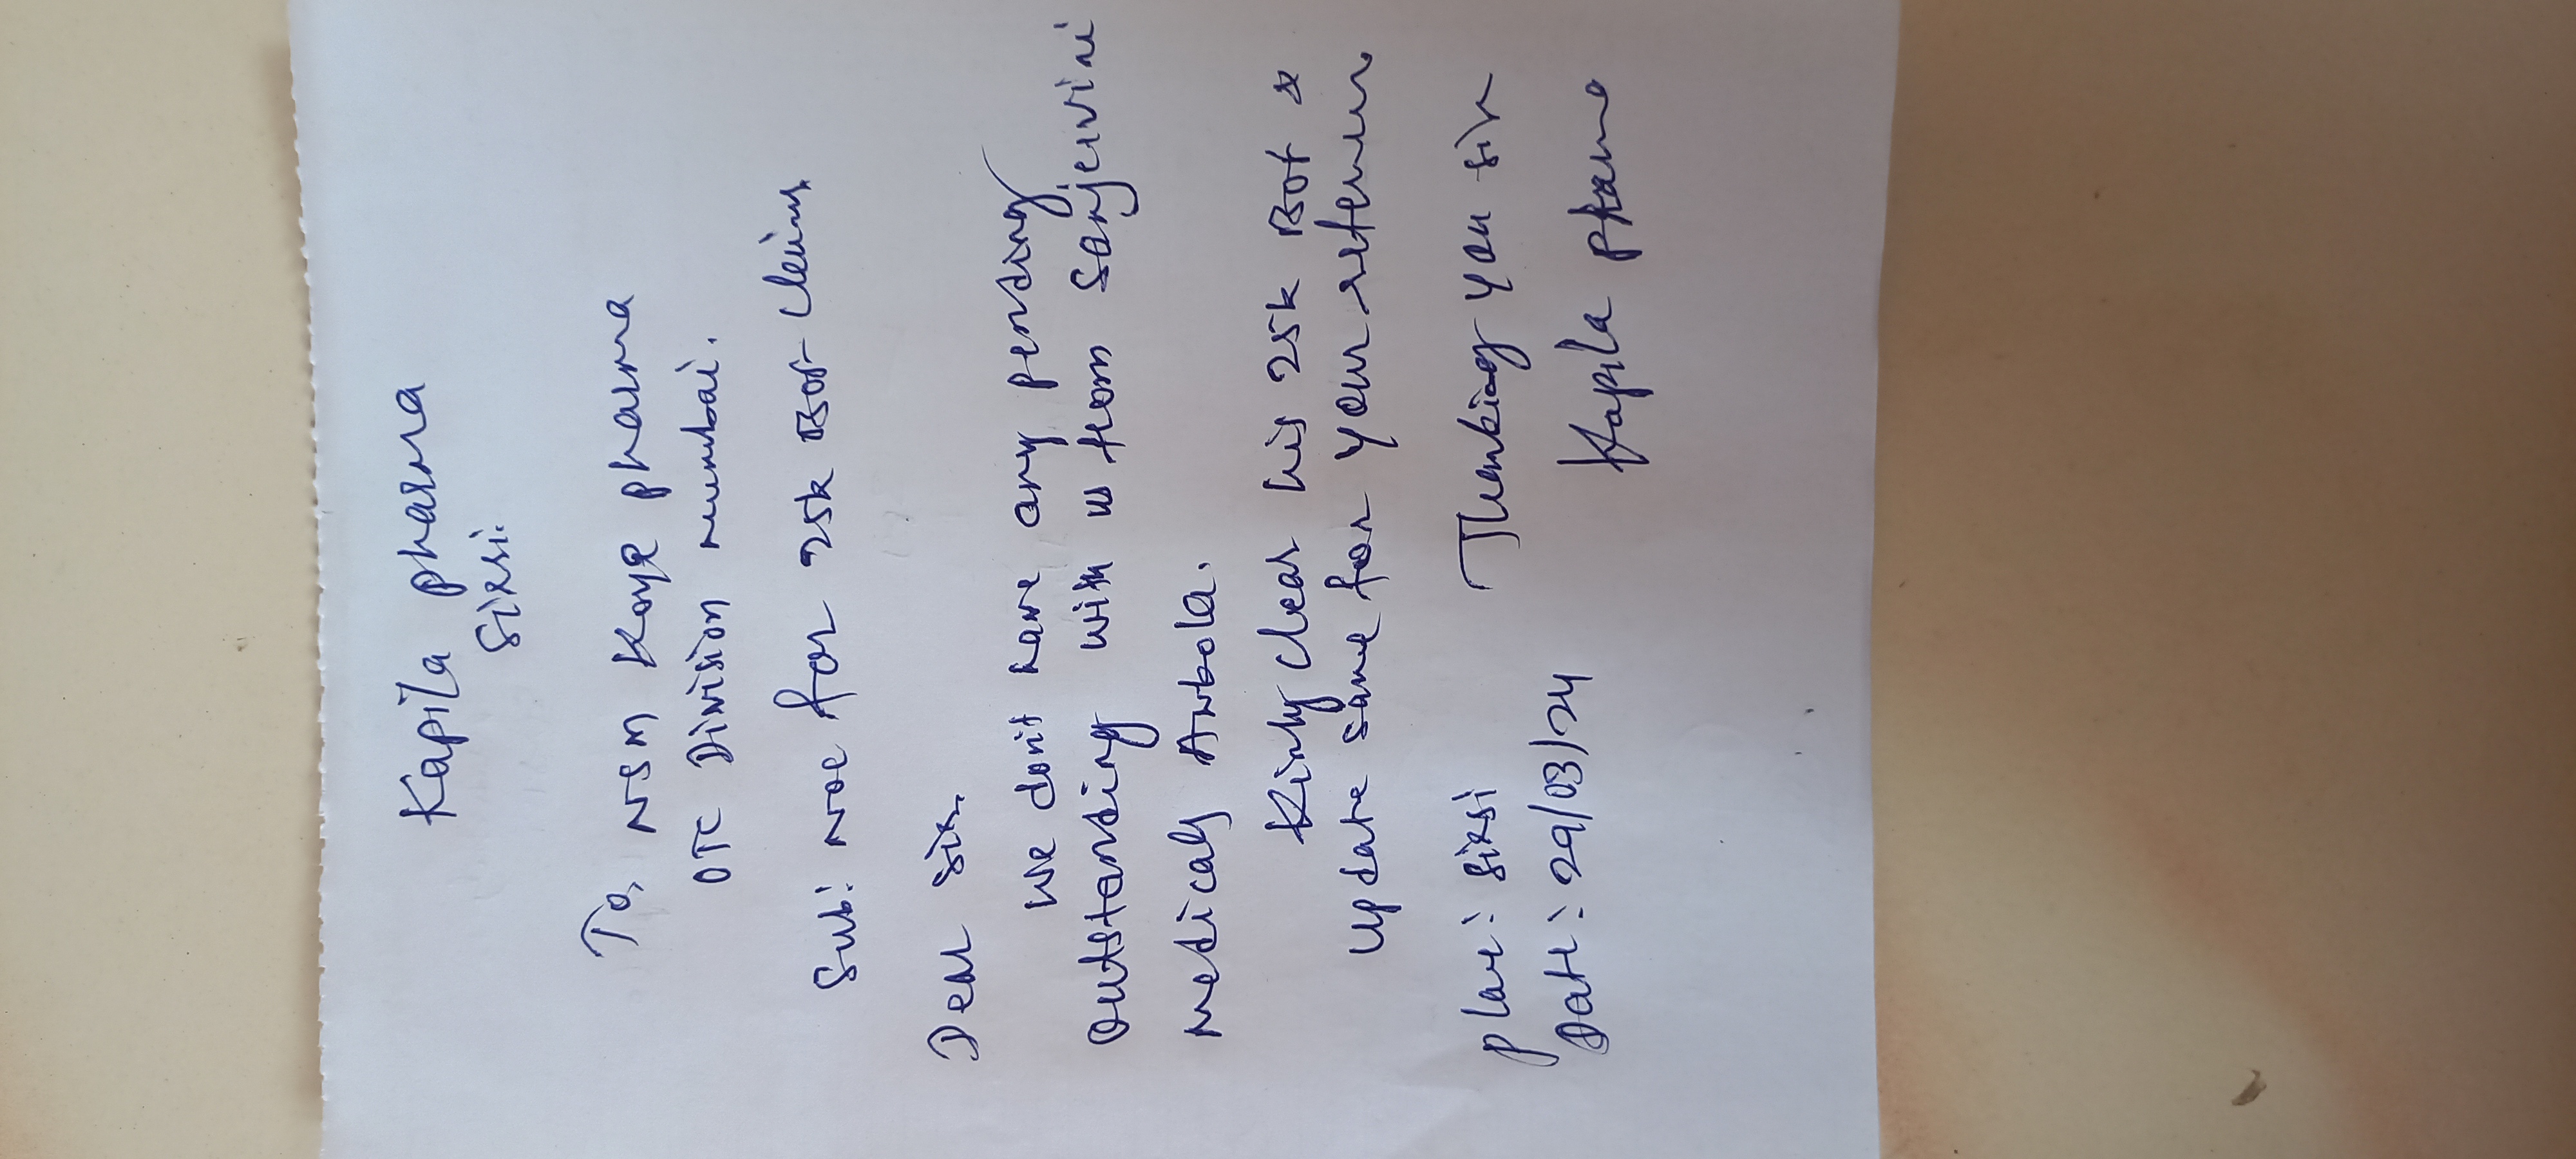 Kapila pharma
Sirsi.
To,
NSM Koye pharma
OTC Division mumbai.
Sub: NOC for 25k Bot claim
Dear Sir,
We don't have any pending
Outstanding with us from Sanjeivini
Medicals Ankola.
Kindly clear his 25k Bot &
update same for your refernce
Thanking you sir
Place: Sirsi
Date: 29/03/24
Kapila pharma